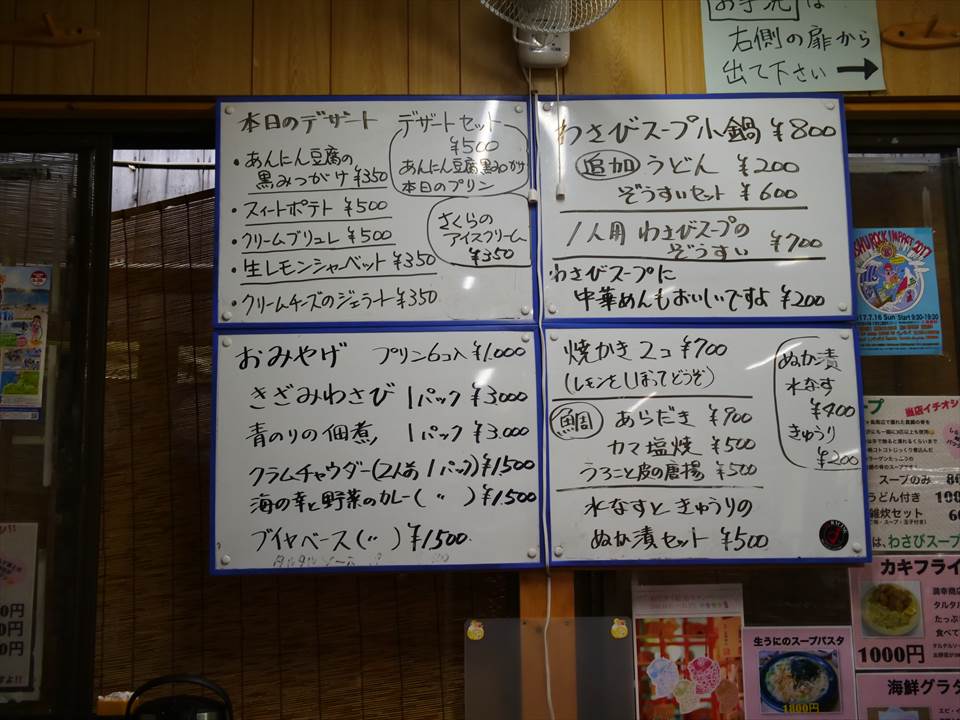 お手洗は
右側の扉から
出て下さい→
本日のデザート
・あんにん豆腐の
黒みつがけ ¥350
・スィートポテト ¥500
・クリームブリュレ ¥500
・生レモンシャーベット ¥350
・クリームチーズのジェラート ¥350
デザートセット
¥500
あんにん豆腐黒みつがけ
本日のプリン
さくらの
アイスクリーム
¥350
わさびスープ小鍋 ¥800
追加 うどん ¥200
ぞうすいセット ¥600
1人用 わさびスープの
ぞうすい ¥700
わさびスープに
中華めんもおいしいですよ ¥200
おみやげ プリン6コ入 ¥1.000
きざみわさび 1パック ¥3000
青のりの佃煮 1パック ¥3.000
クラムチャウダー(2人前 1パック) ¥1,500
海の幸と野菜のカレー(〃) ¥1.500
ブイヤベース(〃) ¥1500
焼かき 2コ ¥700
(レモンをしぼってどうぞ)
鯛 あらだき ¥900
カマ塩焼 ¥500
うろこと皮の唐揚 ¥500
水なすときゅうりの
ぬか漬セット ¥500
ぬか漬
水なす
¥400
きゅうり
¥200
2017.7.16 Sun Start 9:30-19:30
当店イチオシ
スープのみ
うどん付き
雑炊セット
は、わさびスープ
カキフライ
1000円
生うにのスープパスタ
1800円
海鮮グラタ